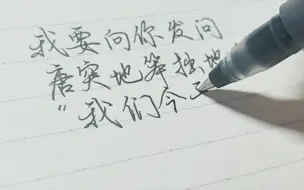 我要向你发问
唐突地笨拙地
“我们今